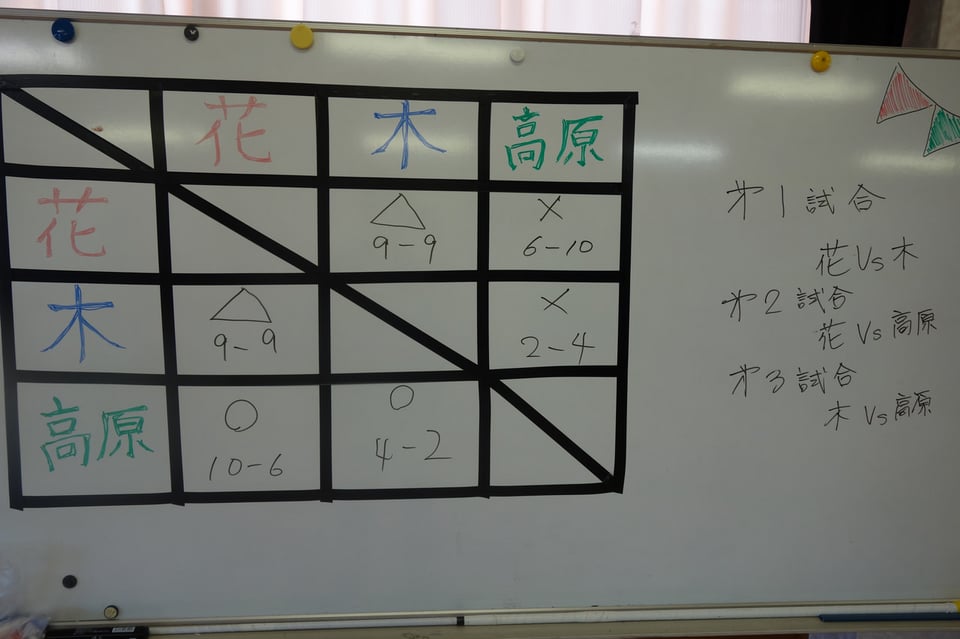 花 木 高原
花 △ ×
9-9 6-10
木 △ ×
9-9 2-4
高原 ○ ○
10-6 4-2
才1試合
花 Vs 木
才2試合
花 Vs 高原
才3試合
木 Vs 高原